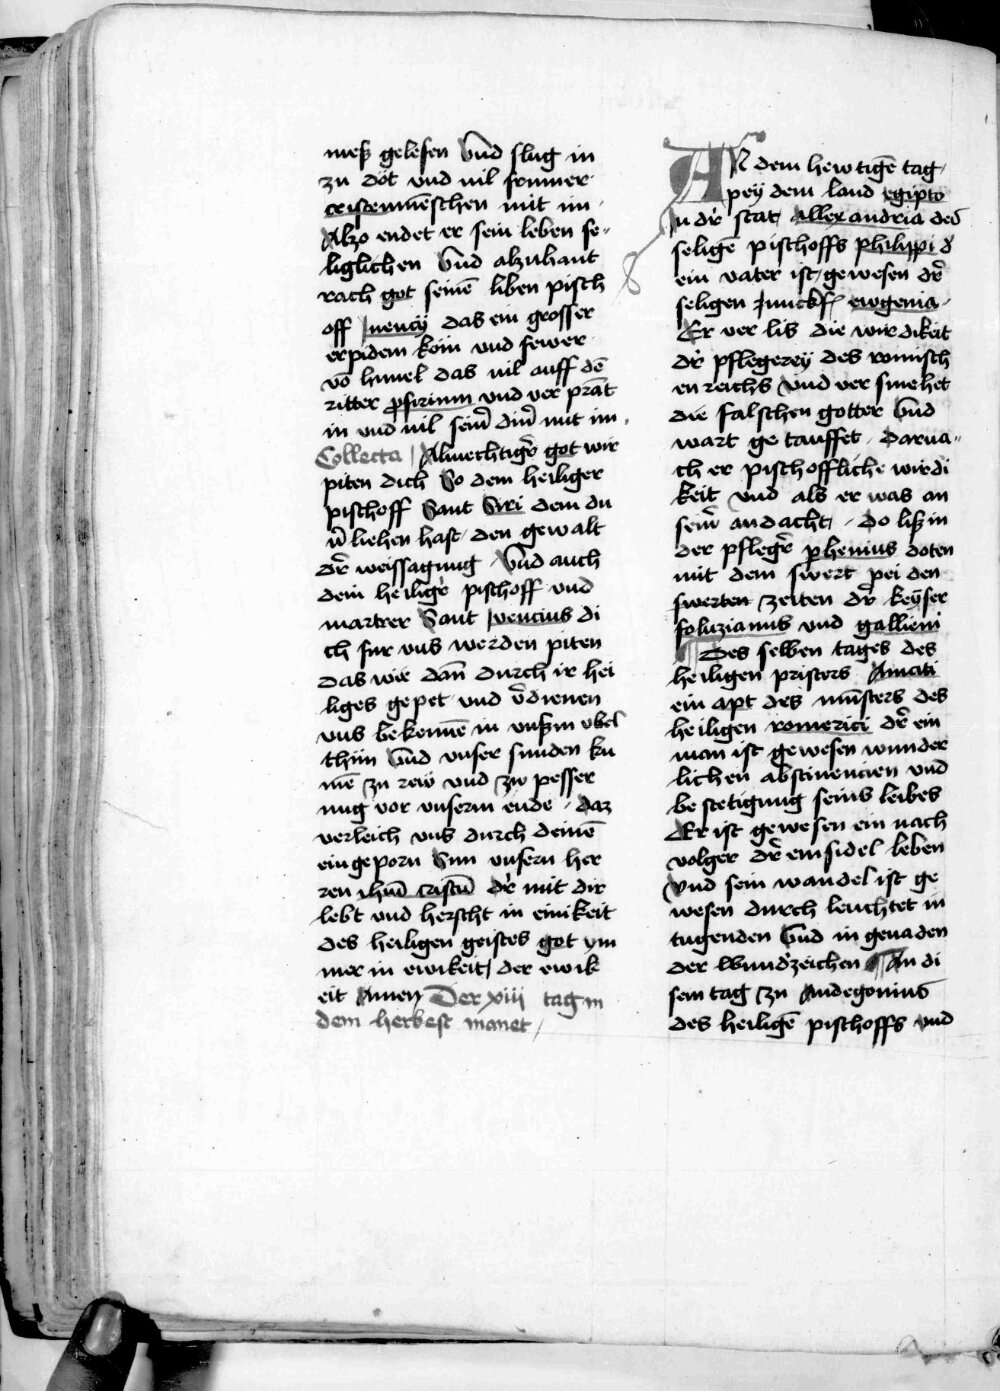 mess gelesen Vnd slug in
zu döt vnd vil frumer
cristenmēschen mit im
Alzo endet er sein leben se-
liglichen Vnd alzuhant
rach got seinē liben pisch
off Juencij das ein grosser
erpidem kom vnd fewer
vō himel das vil auff dē
ritter vnd ver prāt
in vnd vil mit im
Collecta Almechtigr̄ got wir
piten dich So dem heiliger
pischoff Sant Siri dem du
v̄ liehen hast den gewalt
dr̄ weyssagung Vnd auch
dem heiligr̄ pischoff vnd
martrer Sant Juencius di
ch fur vns werden piten
das wir dān durch ir hei
liges gepet vnd v̄dienen
vns bekennē in vnsm vbel
thun Vnd vnser sunden ku
mē zu rew vnd zw pesser
nug vor vnserm ende daz
verleich vns durch deinē
ein geporn Sun vnsern her
ren ihm̄ cristū dr̄ mit dir
lebt vnd herscht in einikeit
des heiligen geistes got ym
mer in ewikeit der ewik
eit Amen Der xiii tag in
dem herbest manet
AN dem hewtigē tag
pey dem land egipto
in dr̄ stat Allexandria des
seligē pischoffs philippi d
ein vater ist gewesen dr̄
seligen Junckf ewgenia
Er ver lis die wirdikeit
dr̄ pflegerey des romisch
en reichs Vnd ver smehet
die falschen gotter Vnd
wart ge tauffet darna-
ch er pischoffliche wirdi
keit Vnd als er was an
seinr̄ andacht do liß in
der pflegr̄ phenius doten
mit dem swert pei den
swerten zeiten dr̄ keyser
foluzianus vnd gallieni
Des selben tages des
heiligen pristers Amati
ein apt des mūsters des
heiligen romerici dr̄ ein
man ist gewesen wunder
lichen abstinencien vnd
be stetigung seins leibes
Er ist gewesen ein nach
volger dr̄ einsidel leben
Vnd sein wandel ist ge
wesen durch leuchtet in
tugenden Vnd in genaden
der wundzeichen An di
sem tag zu Andegonius
des heiligē pischoffs vnd